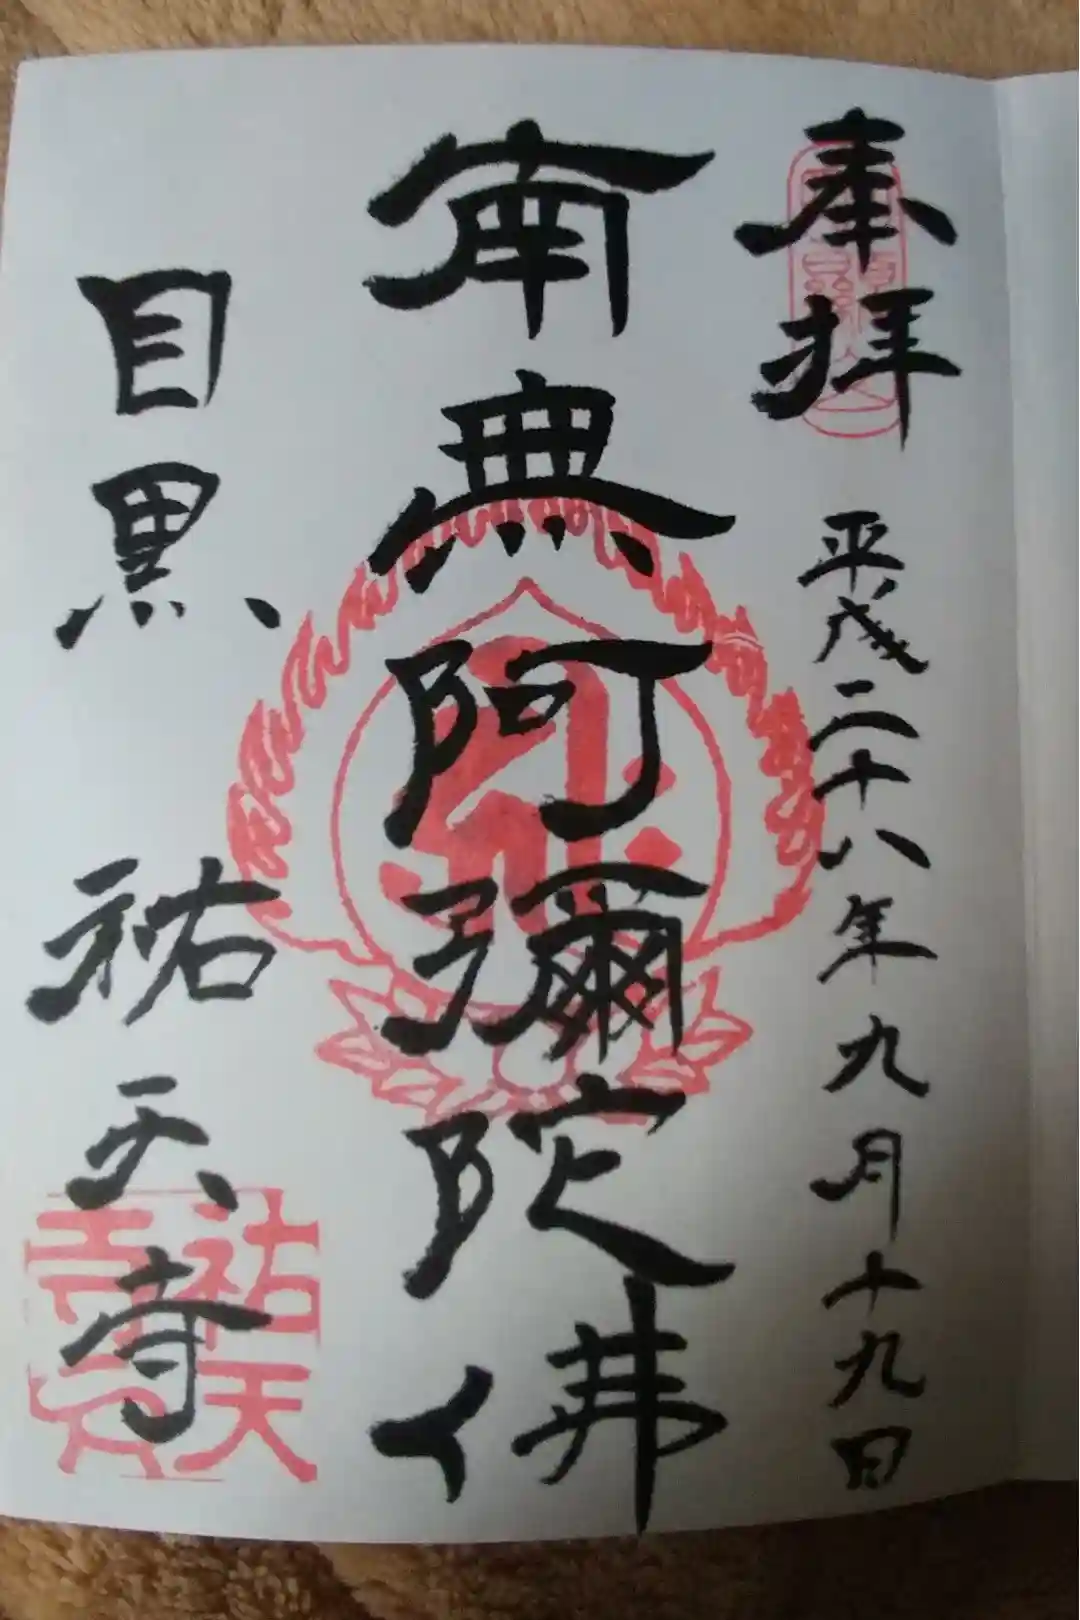 奉拝
平成二十八年九月十九日
南無阿彌陀佛
目黒
祐天寺